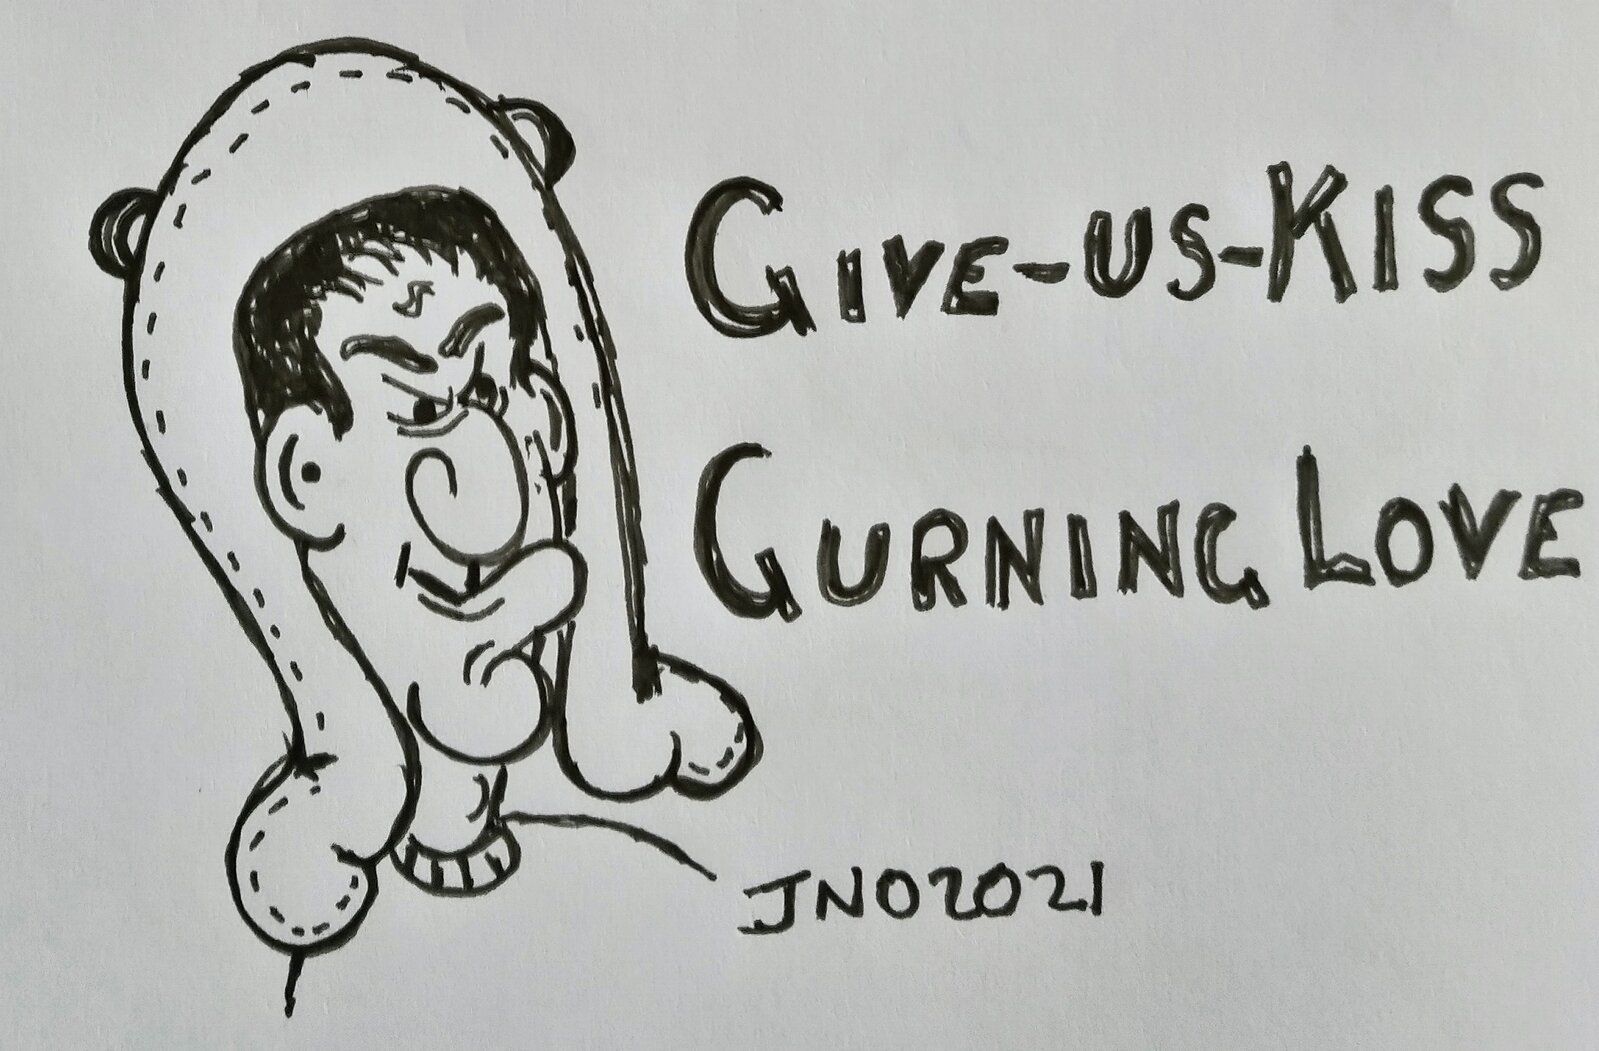 GIVE-US-KISS
GURNING LOVE
JNO2021